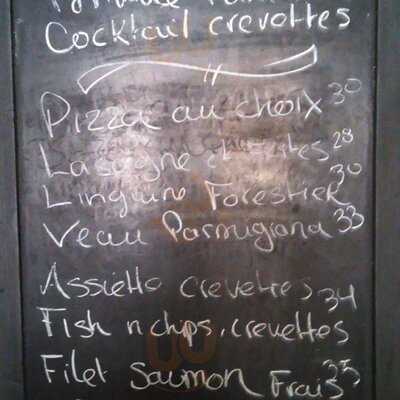 Cocktail crevettes
Pizza au choix 30
Lasagne et frites 28
Linguine Forestier 30
Veau Parmigiana 33
Assiette crevettes 34
Fish n chips, crevettes
Filet saumon Frais 35